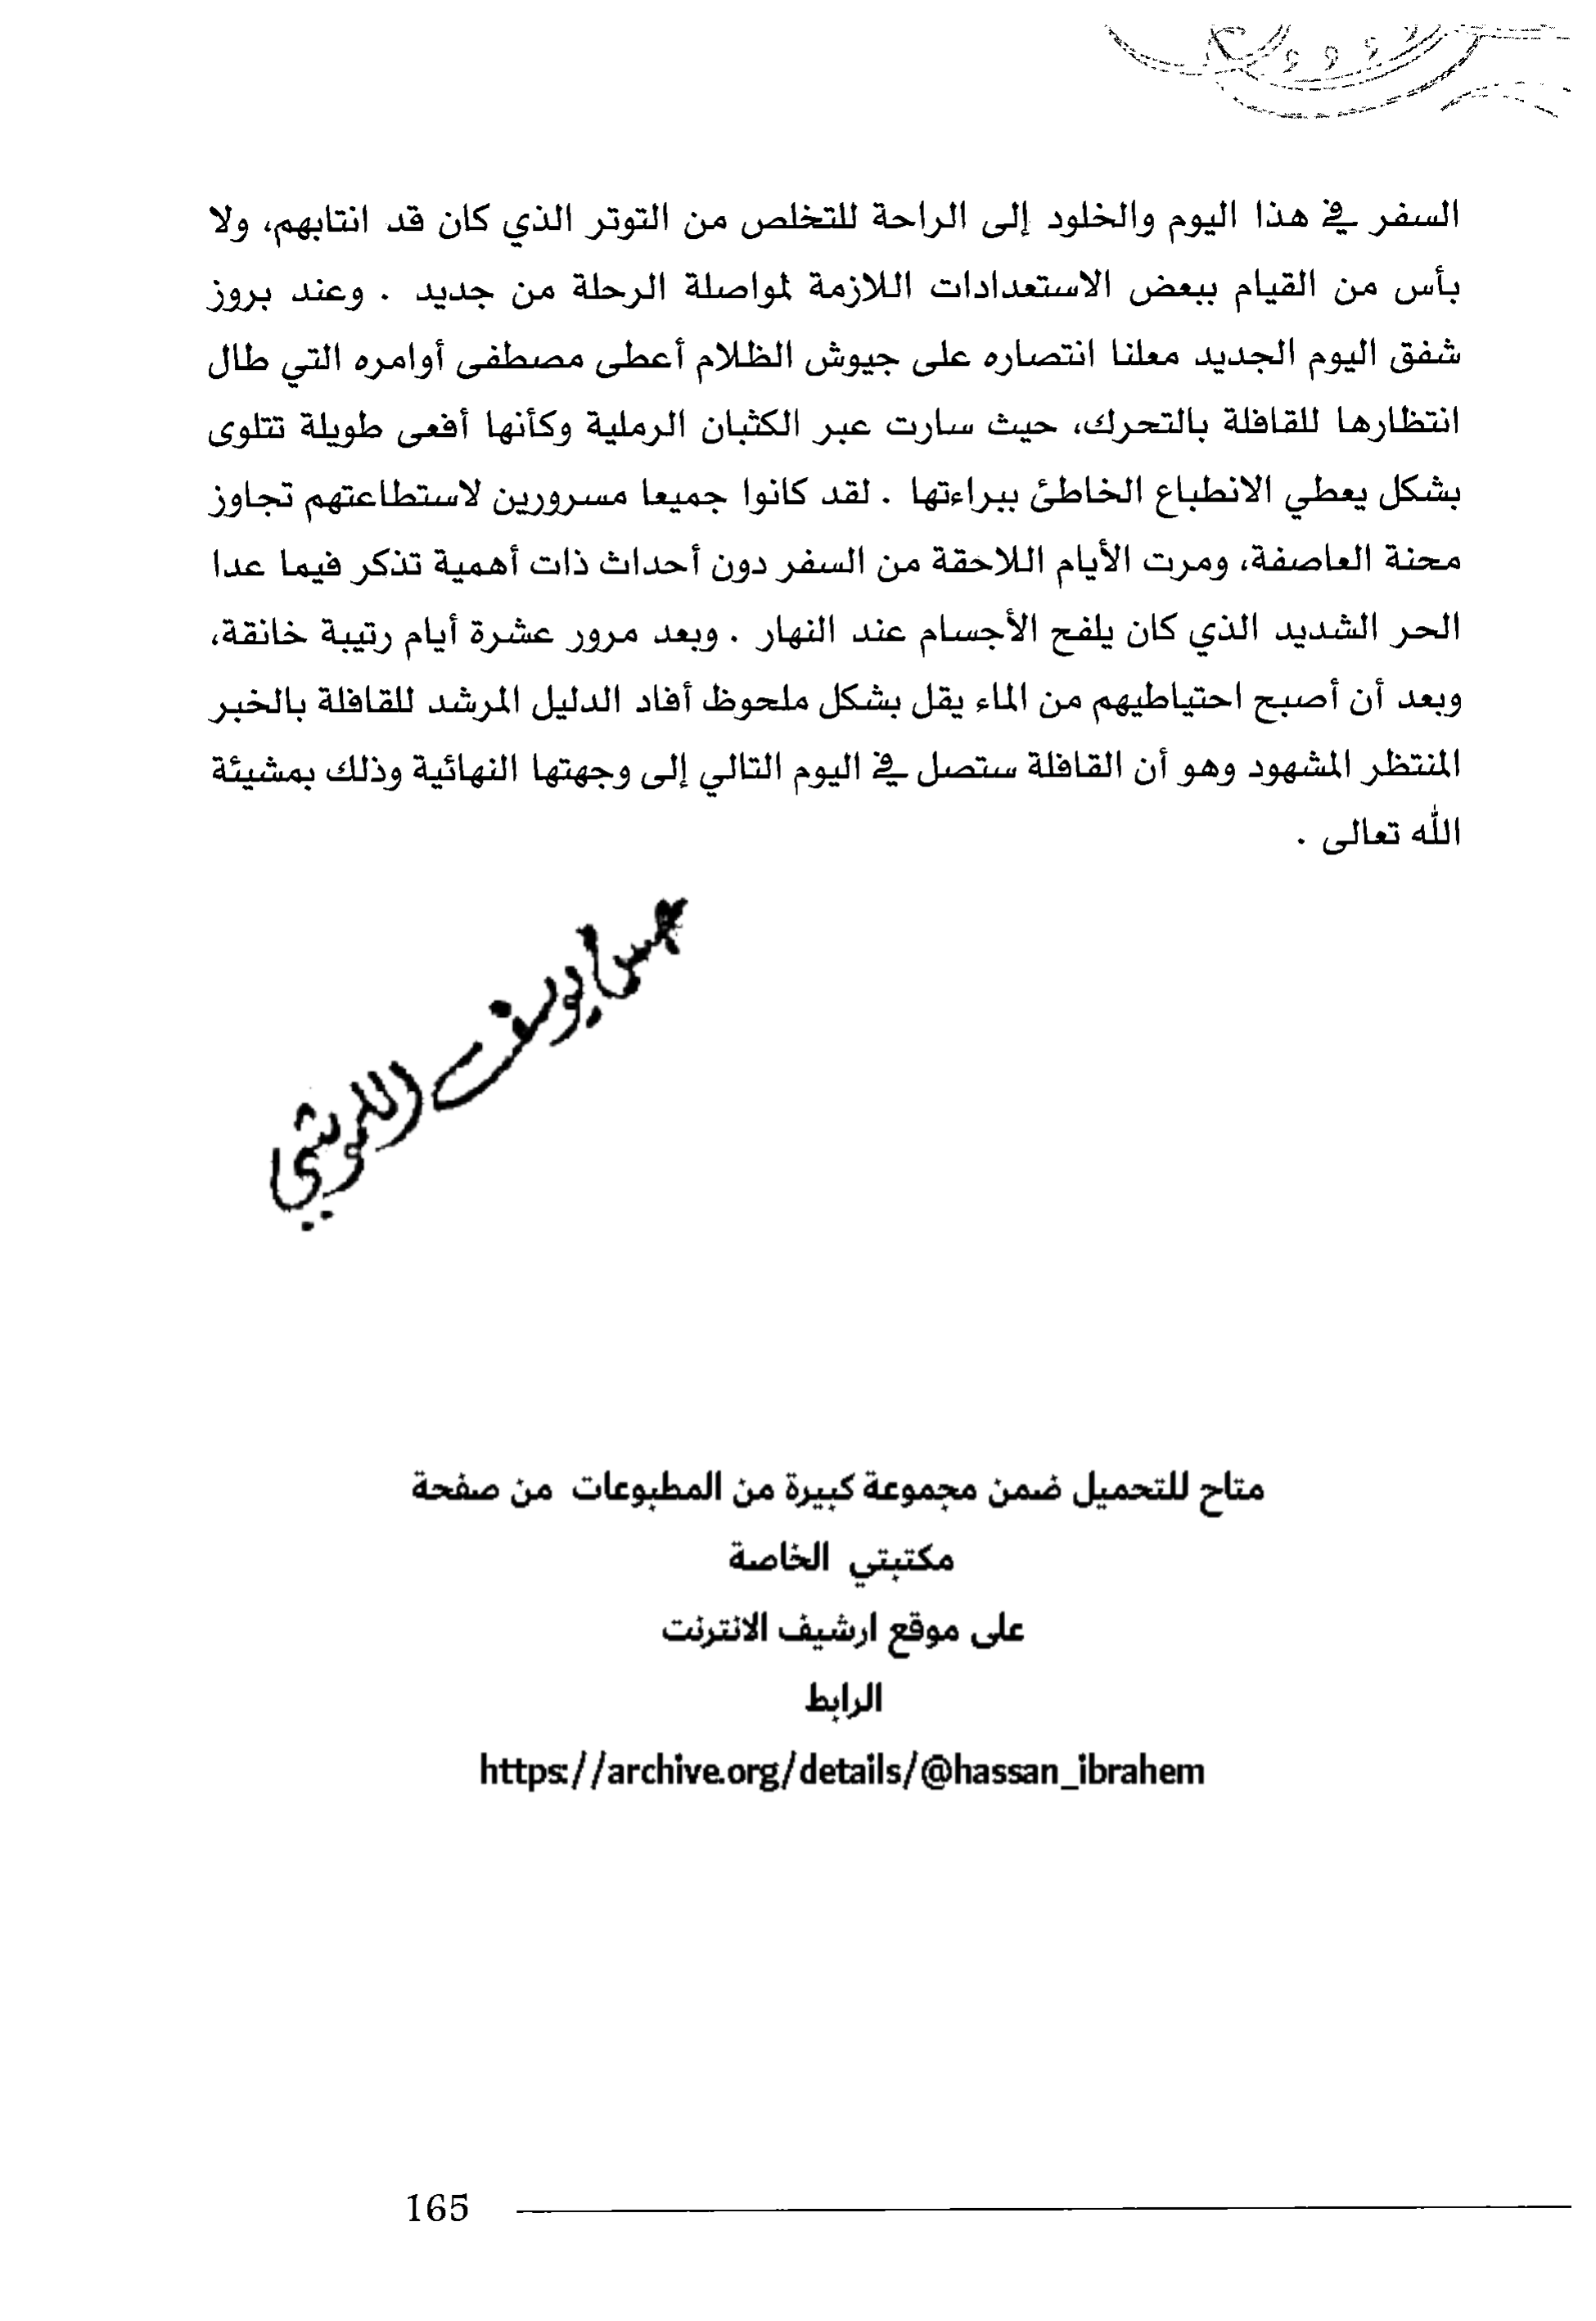 السفر في هذا اليوم والخلود إلى الراحة للتخلص من التوتر الذي كان قد انتابهم، ولا
بأس من القيام ببعض الاستعدادات اللازمة لمواصلة الرحلة من جديد . وعند بروز
شفق اليوم الجديد معلنا انتصاره على جيوش الظلام أعطى مصطفى أوامره التي طال
انتظارها للقافلة بالتحرك، حيث سارت عبر الكثبان الرملية وكأنها أفعى طويلة تتلوى
بشكل يعطي الانطباع الخاطئ ببراءتها . لقد كانوا جميعا مسرورين لاستطاعتهم تجاوز
محنة العاصفة، ومرت الأيام اللاحقة من السفر دون أحداث ذات أهمية تذكر فيما عدا
الحر الشديد الذي كان يلفح الأجسام عند النهار . وبعد مرور عشرة أيام رتيبة خانقة،
وبعد أن أصبح احتياطيهم من الماء يقل بشكل ملحوظ أفاد الدليل المرشد للقافلة بالخبر
المنتظر المشهود وهو أن القافلة ستصل في اليوم التالي إلى وجهتها النهائية وذلك بمشيئة
الله تعالى .
يوسف
متاح للتحميل ضمن مجموعة كبيرة من المطبوعات من صفحة
مكتبتي الخاصة
على موقع ارشيف الانترنت
الرابط
https://archive.org/details/@hassan_ibrahem
165